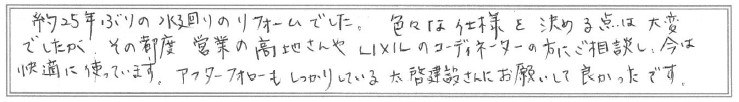 約25年ぶりの水回りのリフォームでした。色々な仕様を決める点は大変
でしたが、その都度営業の高地さんやLIXILのコーディネーターの方にご相談し、今は
快適に使っています。アフターフォローもしっかりしている大啓建設さんにお願いして良かったです。